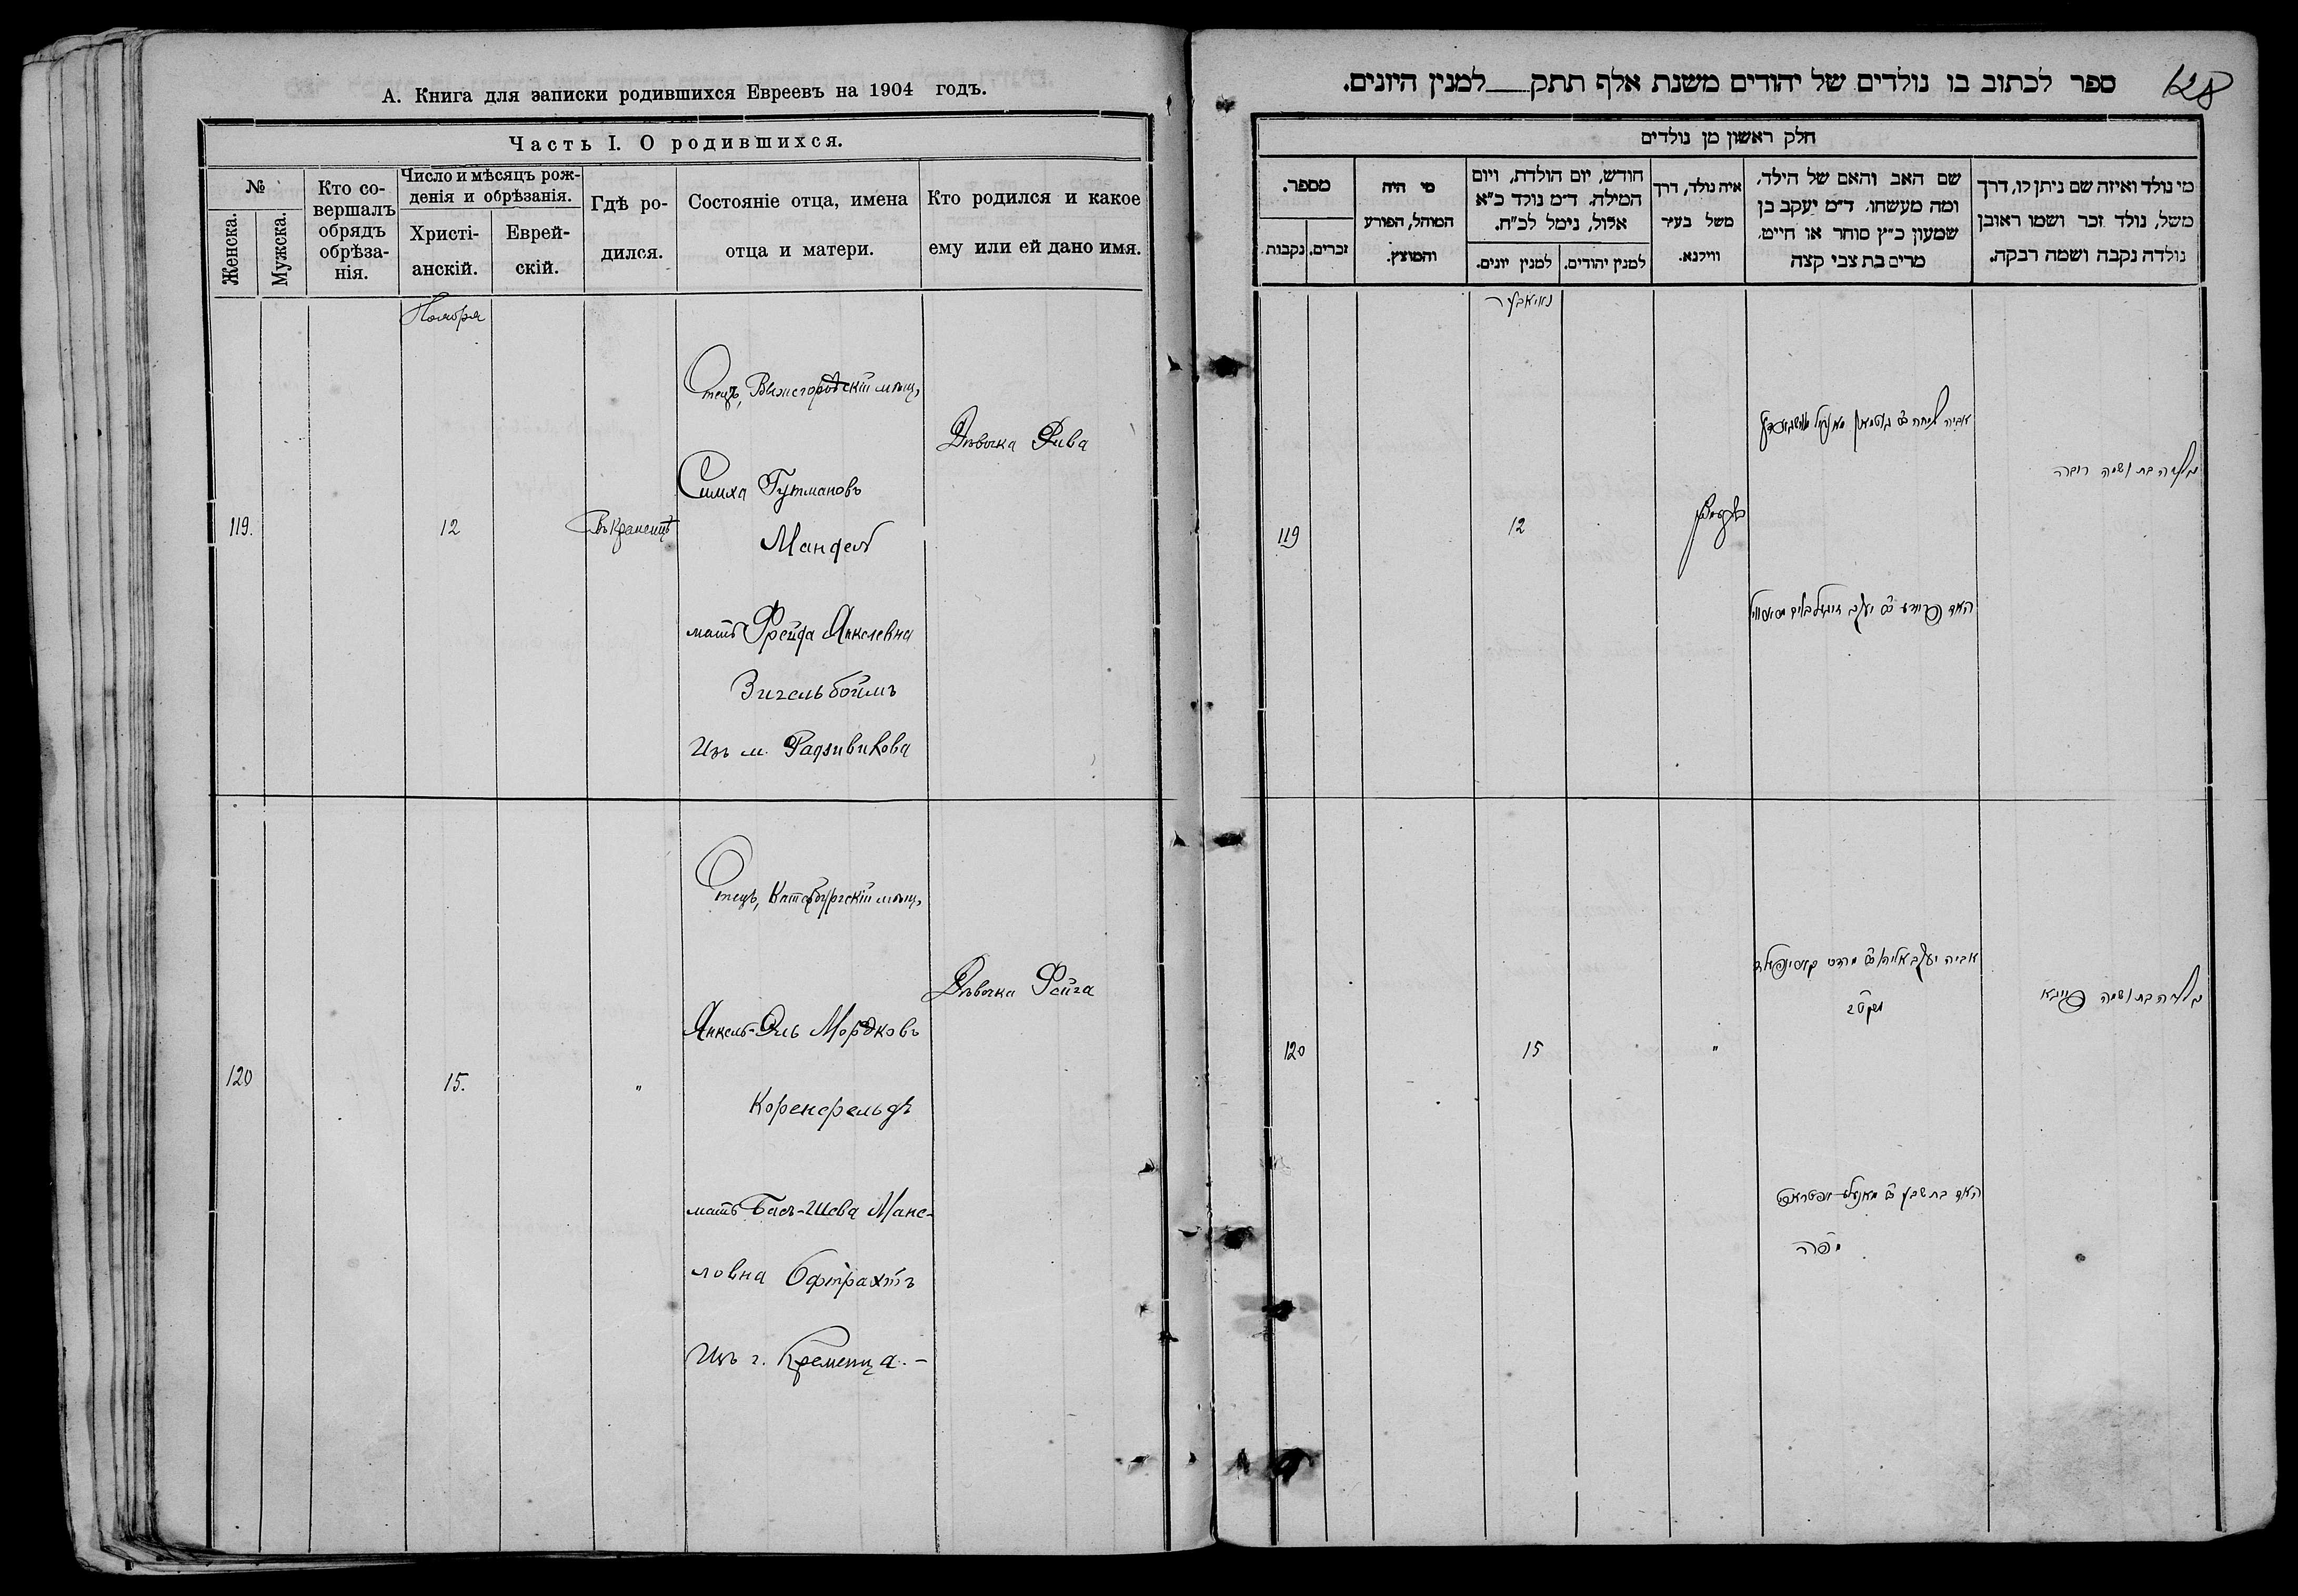 А. Книга для записки родившихся Евреевъ на 1904 годъ.
Часть I. О родившихся.
№
Женска.
Мужска.
Кто со-
вершалъ
обрядъ
обрѣза-
нія.
Число и мѣсяцъ рож-
денія и обрѣзанія.
Христі-
анскій.
Еврей-
скій.
Гдѣ ро-
дился.
Состояніе отца, имена
отца и матери.
Кто родился и какое
ему или ей дано имя.
Ноября
119.
12
Въ Кременцѣ
Отецъ, Вышегородскій мѣщ,
Симха Гутмановъ
Мандель
мать Фрейда Янкелевна
Зигельбоймъ
Изъ м. Радзивилова
Дѣвочка Рива
120
15.
"
Отецъ, Катербургскій мѣщ,
Янкель-Эль Мордковъ
Коренфельдъ
мать Бась-Шева Мане-
ловна Офтрахтъ
Изъ г. Кременца. -
Дѣвочка Фейга
128
ספר לכתוב בו נולדים של יהודים משנת אלף תתק__למנין היונים.
חלק ראשון מן נולדים
מי נולד ואיזה שם ניתן לו, דרך
משל, נולד זכר ושמו ראובן
נולדה נקבה ושמה רבקה.
שם האב והאם של הילד,
ומה מעשהו. ד"מ יעקב בן
שמעון כ"ץ סוחר או חייט,
מרים בת צבי קצה
איה נולד, דרך
משל בעיר
ווילנא.
חודש, יום הולדת, ויום
המילה. ד"מ נולד כ"א
אלול, נימל לכ"ח.
למנין יהודים.
למנין יונים.
מי היה
המוהל, הפורע
והמוצץ.
מספר.
זכרים.
נקבות.
119
12
נולדה בת ושמה ריבה
120
15
"
נולדה בת ושמה פייגא